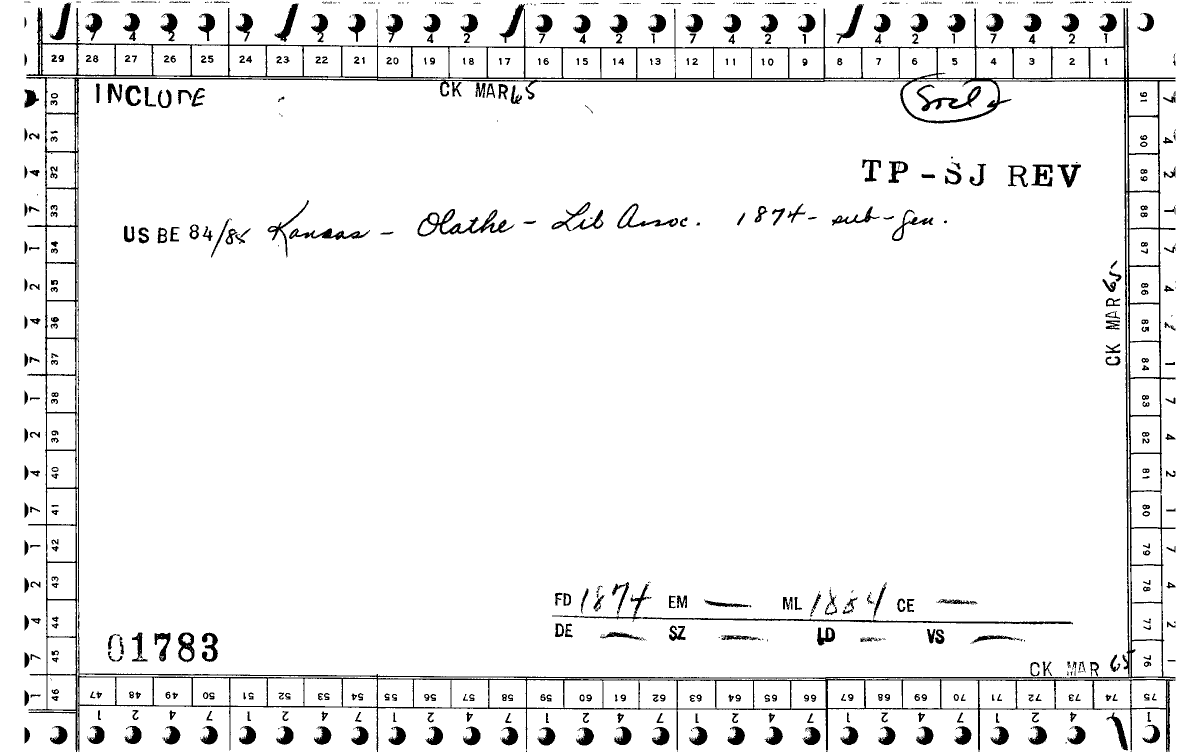 7 4 2 1 7 4 2 1 7 4 2 1 7 4 2 1 7 4 2 1 7 4 2 1 7 4 2 1
29 28 27 26 25 24 23 22 21 20 19 18 17 16 15 14 13 12 11 10 9 8 7 6 5 4 3 2 1
INCLUDE CK MAR 65
TP-SJ REV
US BE 84/85 Kansas - Olathe - Lib Assoc. 1874 - sub-gen.
CK MAR 65
FD 1874 EM — ML 1884 CE —
DE — SZ — LD — VS —
01783
CK MAR 65
30 31 32 33 34 35 36 37 38 39 40 41 42 43 44 45 46
91 90 89 88 87 86 85 84 83 82 81 80 79 78 77 76
47 48 49 50 51 52 53 54 55 56 57 58 59 60 61 62 63 64 65 66 67 68 69 70 71 72 73 74 75
1 2 4 7 1 2 4 7 1 2 4 7 1 2 4 7 1 2 4 7 1 2 4 7 1 2 4 1